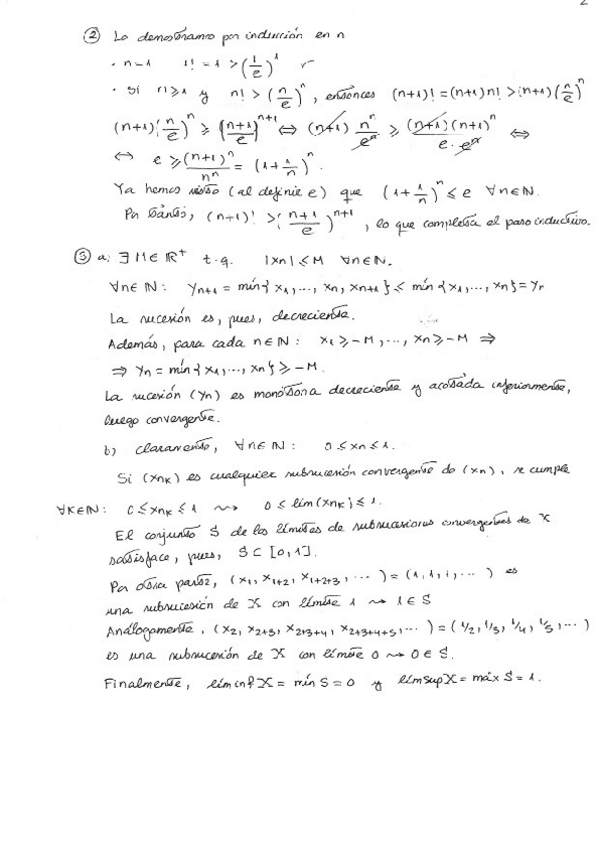 2
② Lo demostramos por inducción en n
· n=1 1! = 1 > (1/e)^1 ✓
· Si n≥1 y n! > (n/e)^n, entonces (n+1)! = (n+1)n! > (n+1)(n/e)^n
(n+1)(n/e)^n ≥ ((n+1)/e)^{n+1} ⇔ (n+1) n^n/e^n ≥ (n+1)(n+1)^n/(e·e^n) ⇔
⇔ e ≥ (n+1)^n/n^n = (1+1/n)^n.
Ya hemos visto (al definir e) que (1+1/n)^n ≤ e ∀n∈ℕ.
Por tanto, (n+1)! > ((n+1)/e)^{n+1}, lo que completa el paso inductivo.
③ a) ∃M∈ℝ⁺ t.q. |xn| ≤ M ∀n∈ℕ.
∀n∈ℕ: y_{n+1} = mín{x₁,..., xn, x_{n+1}} ≤ mín{x₁,..., xn} = yn
La sucesión es, pues, decreciente.
Además, para cada n∈ℕ: x₁ ≥ -M,..., xn ≥ -M ⇒
⇒ yn = mín{x₁,..., xn} ≥ -M.
La sucesión (yn) es monótona decreciente y acotada inferiormente,
luego convergente.
b) Claramente, ∀n∈ℕ: 0 ≤ xn ≤ 1.
Si (x_{nk}) es cualquier subsucesión convergente de (xn), se cumple
∀k∈ℕ: 0 ≤ x_{nk} ≤ 1 ⇝ 0 ≤ lím(x_{nk}) ≤ 1.
El conjunto S de los límites de subsucesiones convergentes de X
satisface, pues, S ⊂ [0,1].
Por otra parte, (x₁, x_{1+2}, x_{1+2+3}, ...) = (1, 1, 1, ...) es
una subsucesión de X con límite 1 ⇝ 1∈S
Análogamente, (x₂, x_{2+3}, x_{2+3+4}, x_{2+3+4+5}, ...) = (1/2, 1/3, 1/4, 1/5, ...)
es una subsucesión de X con límite 0 ⇝ 0∈S.
Finalmente, lím inf X = mín S = 0 y lím sup X = máx S = 1.